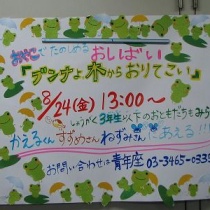 おやこでたのしめる おしばい
『ブンナよ 木からおりてこい』
8/24(金) 13:00～
しょうがく3年生以下のおともだちもみられる
かえるくん すずめさん ねずみさんにあえる!!!
お問い合わせは 青年座 03-3465-0